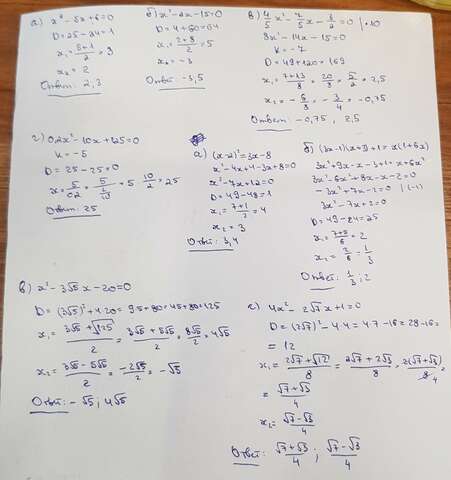 а) x² - 5x + 6 = 0
D = 25 - 24 = 1
x₁ = (5+1)/2 = 3
x₂ = 2
Ответ: 2, 3
б) x² - 2x - 15 = 0
D = 4 + 60 = 64
x₁ = (2+8)/2 = 5
x₂ = -3
Ответ: -3, 5
в) 4/5 x² - 7/5 x - 3/2 = 0 | · 10
8x² - 14x - 15 = 0
k = -7
D = 49 + 120 = 169
x₁ = (7+13)/8 = 20/8 = 5/2 = 2,5
x₂ = -6/8 = -3/4 = -0,75
Ответ: -0,75, 2,5
г) 0,2x² - 10x + 125 = 0
k = -5
D = 25 - 25 = 0
x = 5/0,2 = 5/(2/10) = 5 · 10/2 = 25
Ответ: 25
а) (x-2)² = 3x - 8
x² - 4x + 4 - 3x + 8 = 0
x² - 7x + 12 = 0
D = 49 - 48 = 1
x₁ = (7+1)/2 = 4
x₂ = 3
Ответ: 3, 4
б) (3x-1)(x+3) + 1 = x(1+6x)
3x² + 9x - x - 3 + 1 = x + 6x²
3x² - 6x² + 8x - x - 2 = 0
-3x² + 7x - 2 = 0 | (-1)
3x² - 7x + 2 = 0
D = 49 - 24 = 25
x₁ = (7+5)/6 = 2
x₂ = 2/6 = 1/3
Ответ: 1/3; 2
в) x² - 3√5x - 20 = 0
D = (3√5)² + 4·20 = 9·5 + 80 = 45 + 80 = 125
x₁ = (3√5 + √125)/2 = (3√5 + 5√5)/2 = 8√5/2 = 4√5
x₂ = (3√5 - 5√5)/2 = -2√5/2 = -√5
Ответ: -√5; 4√5
г) 4x² - 2√7x + 1 = 0
D = (2√7)² - 4·4 = 4·7 - 16 = 28 - 16 =
= 12
x₁ = (2√7 + √12)/8 = (2√7 + 2√3)/8 = 2(√7+√3)/8 4 =
= (√7+√3)/4
x₂ = (√7-√3)/4
Ответ: (√7+√3)/4 ; (√7-√3)/4